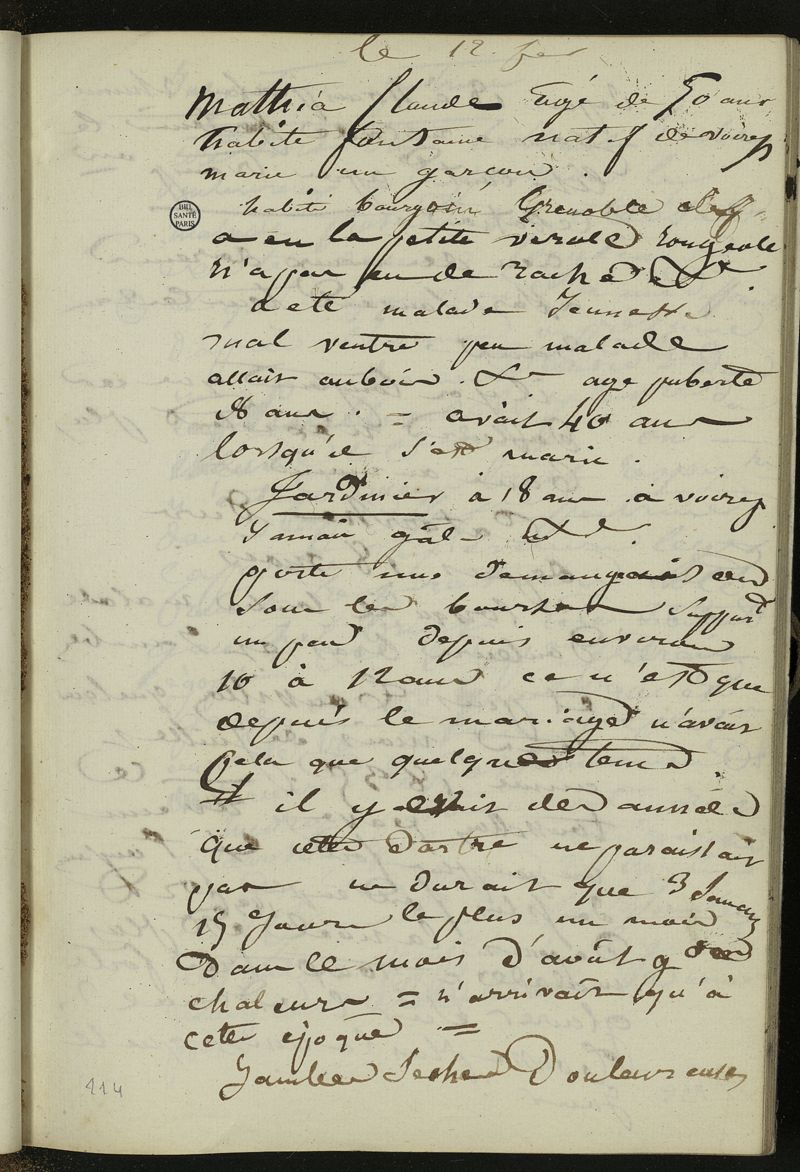 le 12 fev
Mathia Claude agé de 50 ans
habite fontaine natif de voirep
marie un garçon
habite bourgoin Grenoble
BIU SANTÉ PARIS
a eu la petite verole rougeole
n'a pas eu de rache &
a ete malade Jeunesse
mal ventre peu malade
allait au bois . & age puberte
18 ans . = avait 40 ans
lorsqu'il s'est marie .
Jardinier à 18 ans à voirep
Jamais gale
porte une demangeaison
sous les bourses suppure
un peu depuis environ
10 à 12 ans ce n'est que
depuis le mariage n'avait
cela que quelques tems
il y avait des années
que cette dartre ne paraissait
pas ne durait que 3 Semain
15 Jours le plus un mois
Dans le mois d'avût
chaleurs = n'arrivait qu'à
cette époque =
Jambes Seches Douleureuses
114